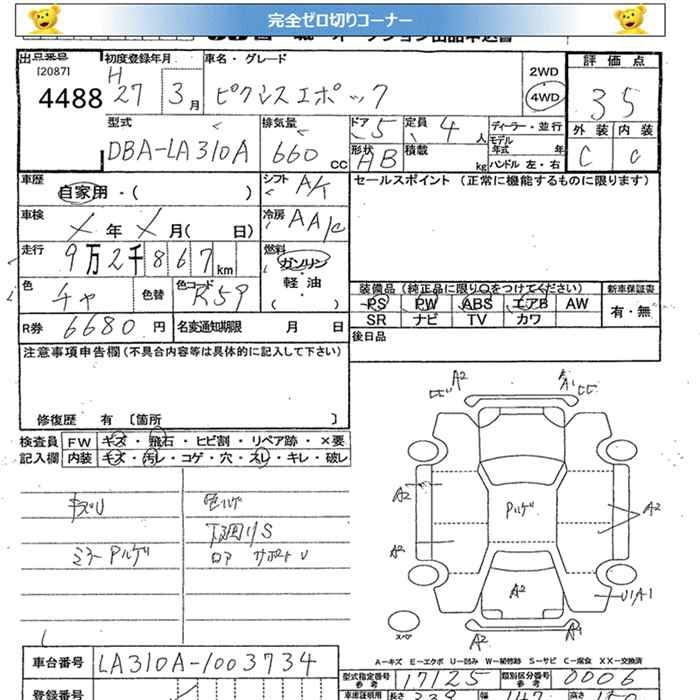 完全ゼロ切りコーナー
出品番号
[2087]
4488
初度登録年月
H
27 3月
車名・グレード
ピクシスエポック
2WD
4WD
評価点
3 5
外装 内装
C C
型式
DBA-LA310A
排気量
660 CC
ドア 5
形状 AB
定員 4 人
積載 kg
ディーラー・並行
モデル
年式 年
ハンドル 左・右
車歴
自家用・( )
シフト A/
セールスポイント (正常に機能するものに限ります)
車検
年 月( 日)
冷房 AA/C
走行
9万2千867km
燃料
ガソリン
軽油
( )
色
チャ
色替
色コード R59
装備品 (純正品に限り○をつけてください)
新車保証書
PS PW ABS エアB AW
SR ナビ TV カワ
有・無
R券 6680円
名変通知期限 月 日
後日品
注意事項申告欄(不具合内容等は具体的に記入して下さい)
修復歴 有 〔箇所 〕
検査員
記入欄
FW キズ・飛石・ヒビ割・リペア跡・×要
内装 キズ・汚レ・コゲ・穴・スレ・キレ・破レ
キズU
色ハゲ
下回りS
ミラーPハゲ
ロアサポートU
A2
A1
A2
A2
Pハゲ
A2
A2
U1A1
A2
A1
スペア
A-キズ E-エクボ U-凹み W-補修跡 S-サビ C-腐食 XX-交換済
車台番号 LA310A-1003734
型式指定番号
参考
17125
類別区分番号
参考
0006
登録番号
車庫証明用
長さ 339 幅 147 高さ 150